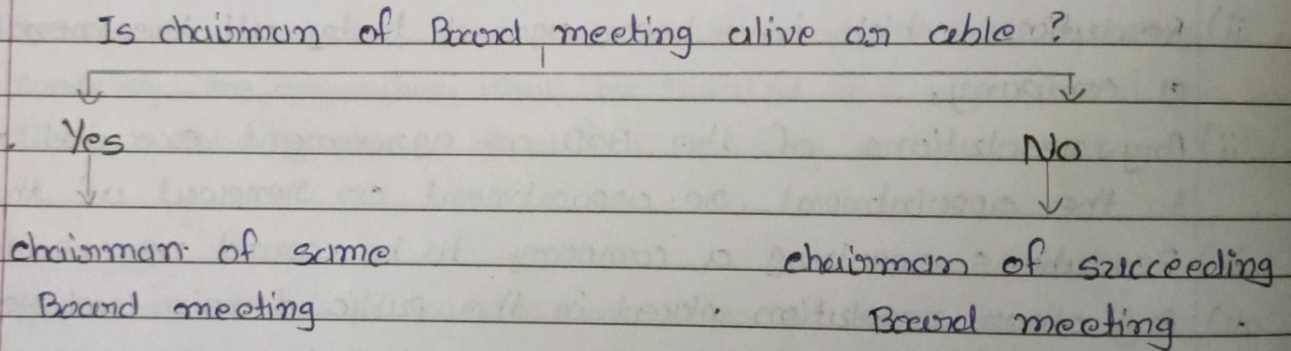 Is chairman of Board meeting alive or able?
Yes
No
chairman of same
Board meeting
chairman of succeeding
Board meeting